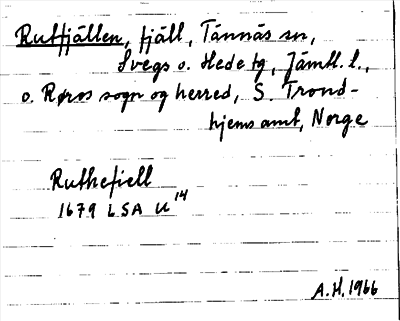 Rutfjällen, fjäll, Tännäs sn,
Svegs o. Hede tg, Jämtl. l.,
o. Røros sogn og herred, S. Trond-
hjems amt, Norge
Ruthefiell
1679 LSA U¹⁴
A.H. 1966